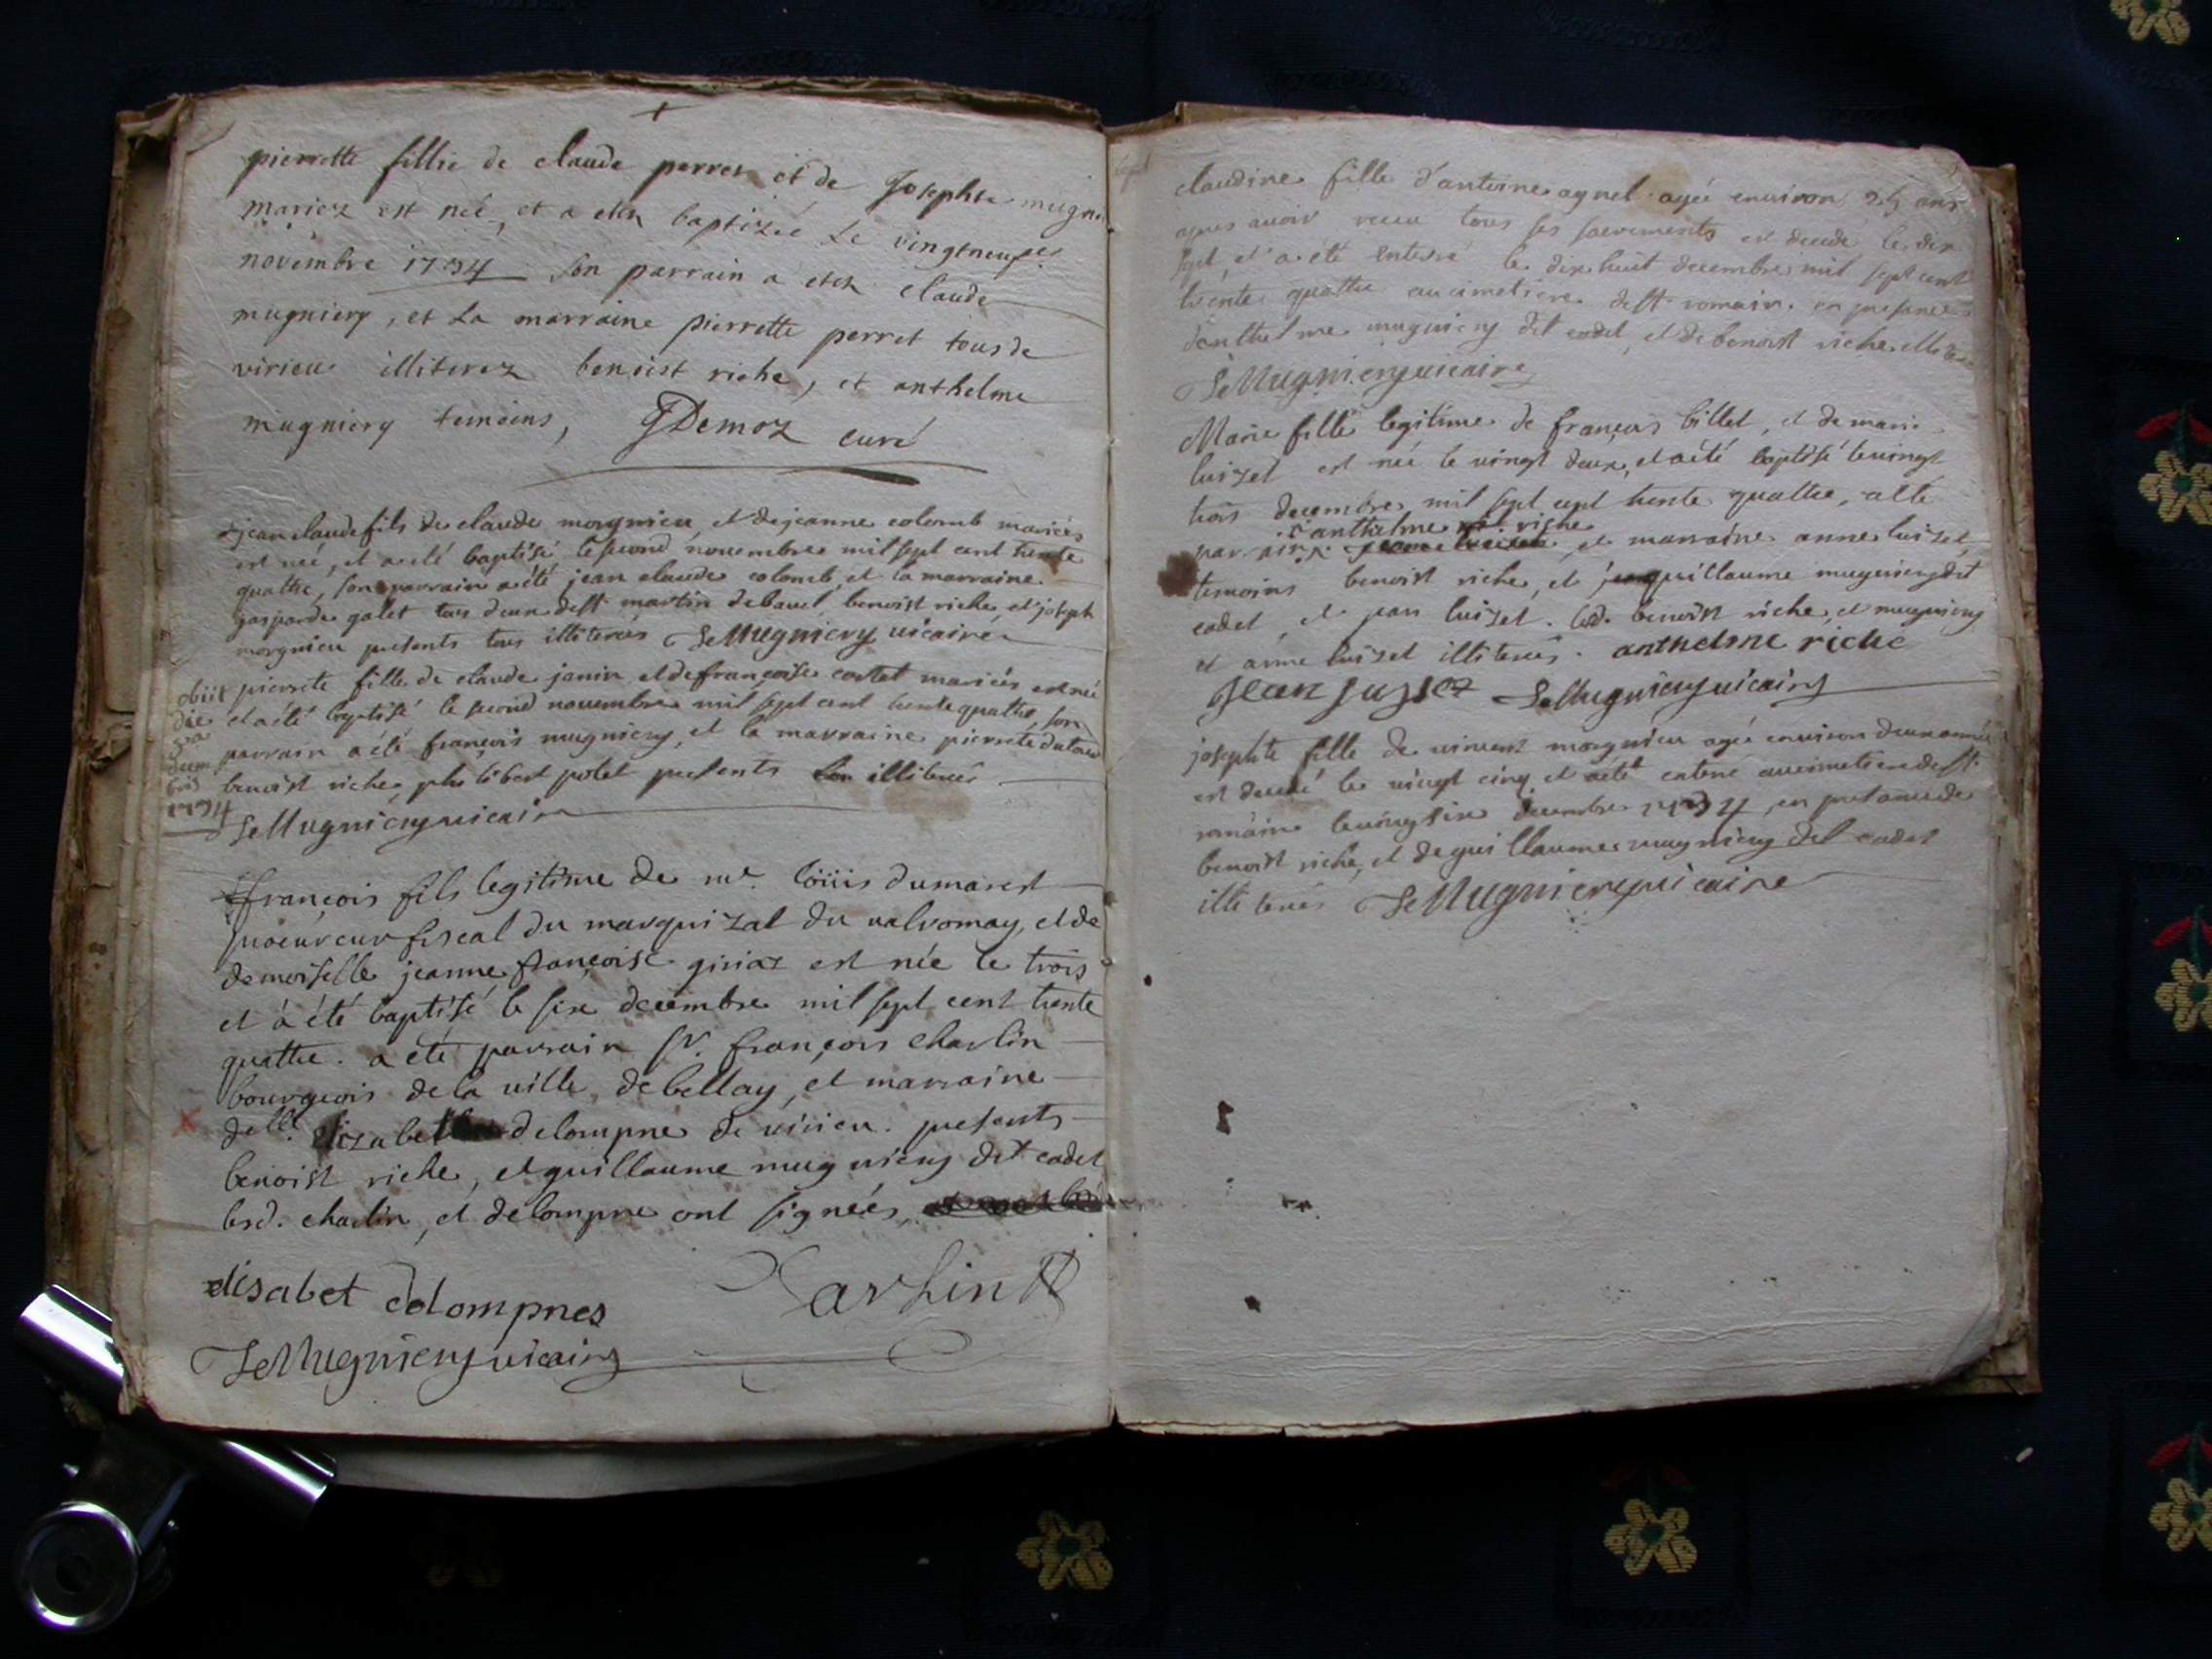 pierrette fillie de claude perret et de Josephte mugni
mariez est neé, et a esté baptizeé Le vingtneufe
novembre 1734 son parrain a esté claude
mugniery, et La marraine pierrette perret tous de
virieu illiterez benoist riche, et anthelme
mugniery temoins, GDemoz curé
jean claude fils de claude morgnieu et de jeanne colomb mariées
est neé, et a eté baptisé le second novembre mil sept cent trente
quattre, son parrain a été jean claude colomb, et la marraine
gasparde galet tous deux de st martin de bavel, benoist riche, et joseph
morgnieu presents tous illiterés Mugniery vicaire
obiit
die
3a
1734
pierrete fille de claude janin et de françoise costet mariées est née
et a été baptisé le second novembre mil sept cent trente quattre, son
parrain a été françois mugniery, et la marraine pierrete
benoist riche, philibert potet presents illiterés
Mugniery vicaire
françois fils legitime de mr. loüis dumarest
procureur fiscal du marquizat du valromay, et de
demoiselle jeanne françoise giriaz est née le trois
et à été baptisé le six decembre mil sept cent trente
quattre. a été parrain sr. françois charlin
bourgeois de la ville de bellay, et marraine
delle. elizabet delompne de virieu. presents
benoist riche, et guillaume mugniery dit cadet
lesd. charlin, et delompne ont signées,
elisabet delompnes
Mugniery vicaire
claudine fille d'antoine agnel agée environ 25 ans
apres avoir receu tous ses sacrements est decedé le dix
sept, et a été enterré le dix huit decembre mil sept cent
trente quattre au cimetiere de st romain. en presence
d'anthelme mugniery dit cadet, et de benoist riche
Mugniery vicaire
Marie fille legitime de françois billet, et de marie
luizet est née le vingt deux, et a été baptisé le vingt
trois decembre mil sept cent trente quattre, a été
anthelme riche
parrain et marraine anne luizet,
temoins benoist riche, et guillaume mugniery dit
cadet, et jean luizet. lesd. benoist riche, et mugniery
et anne luizet illiterés. anthelme riche
jean Mugniery vicaire
josephte fille de vincent morgnieu agée environ deux année
est decedé le vingt cinq et a été enterré au cimetiere de st
romain le vingt six decembre 1734, en presence de
benoist riche, et de guillaume mugniery dit cadet
illiterés Mugniery vicaire